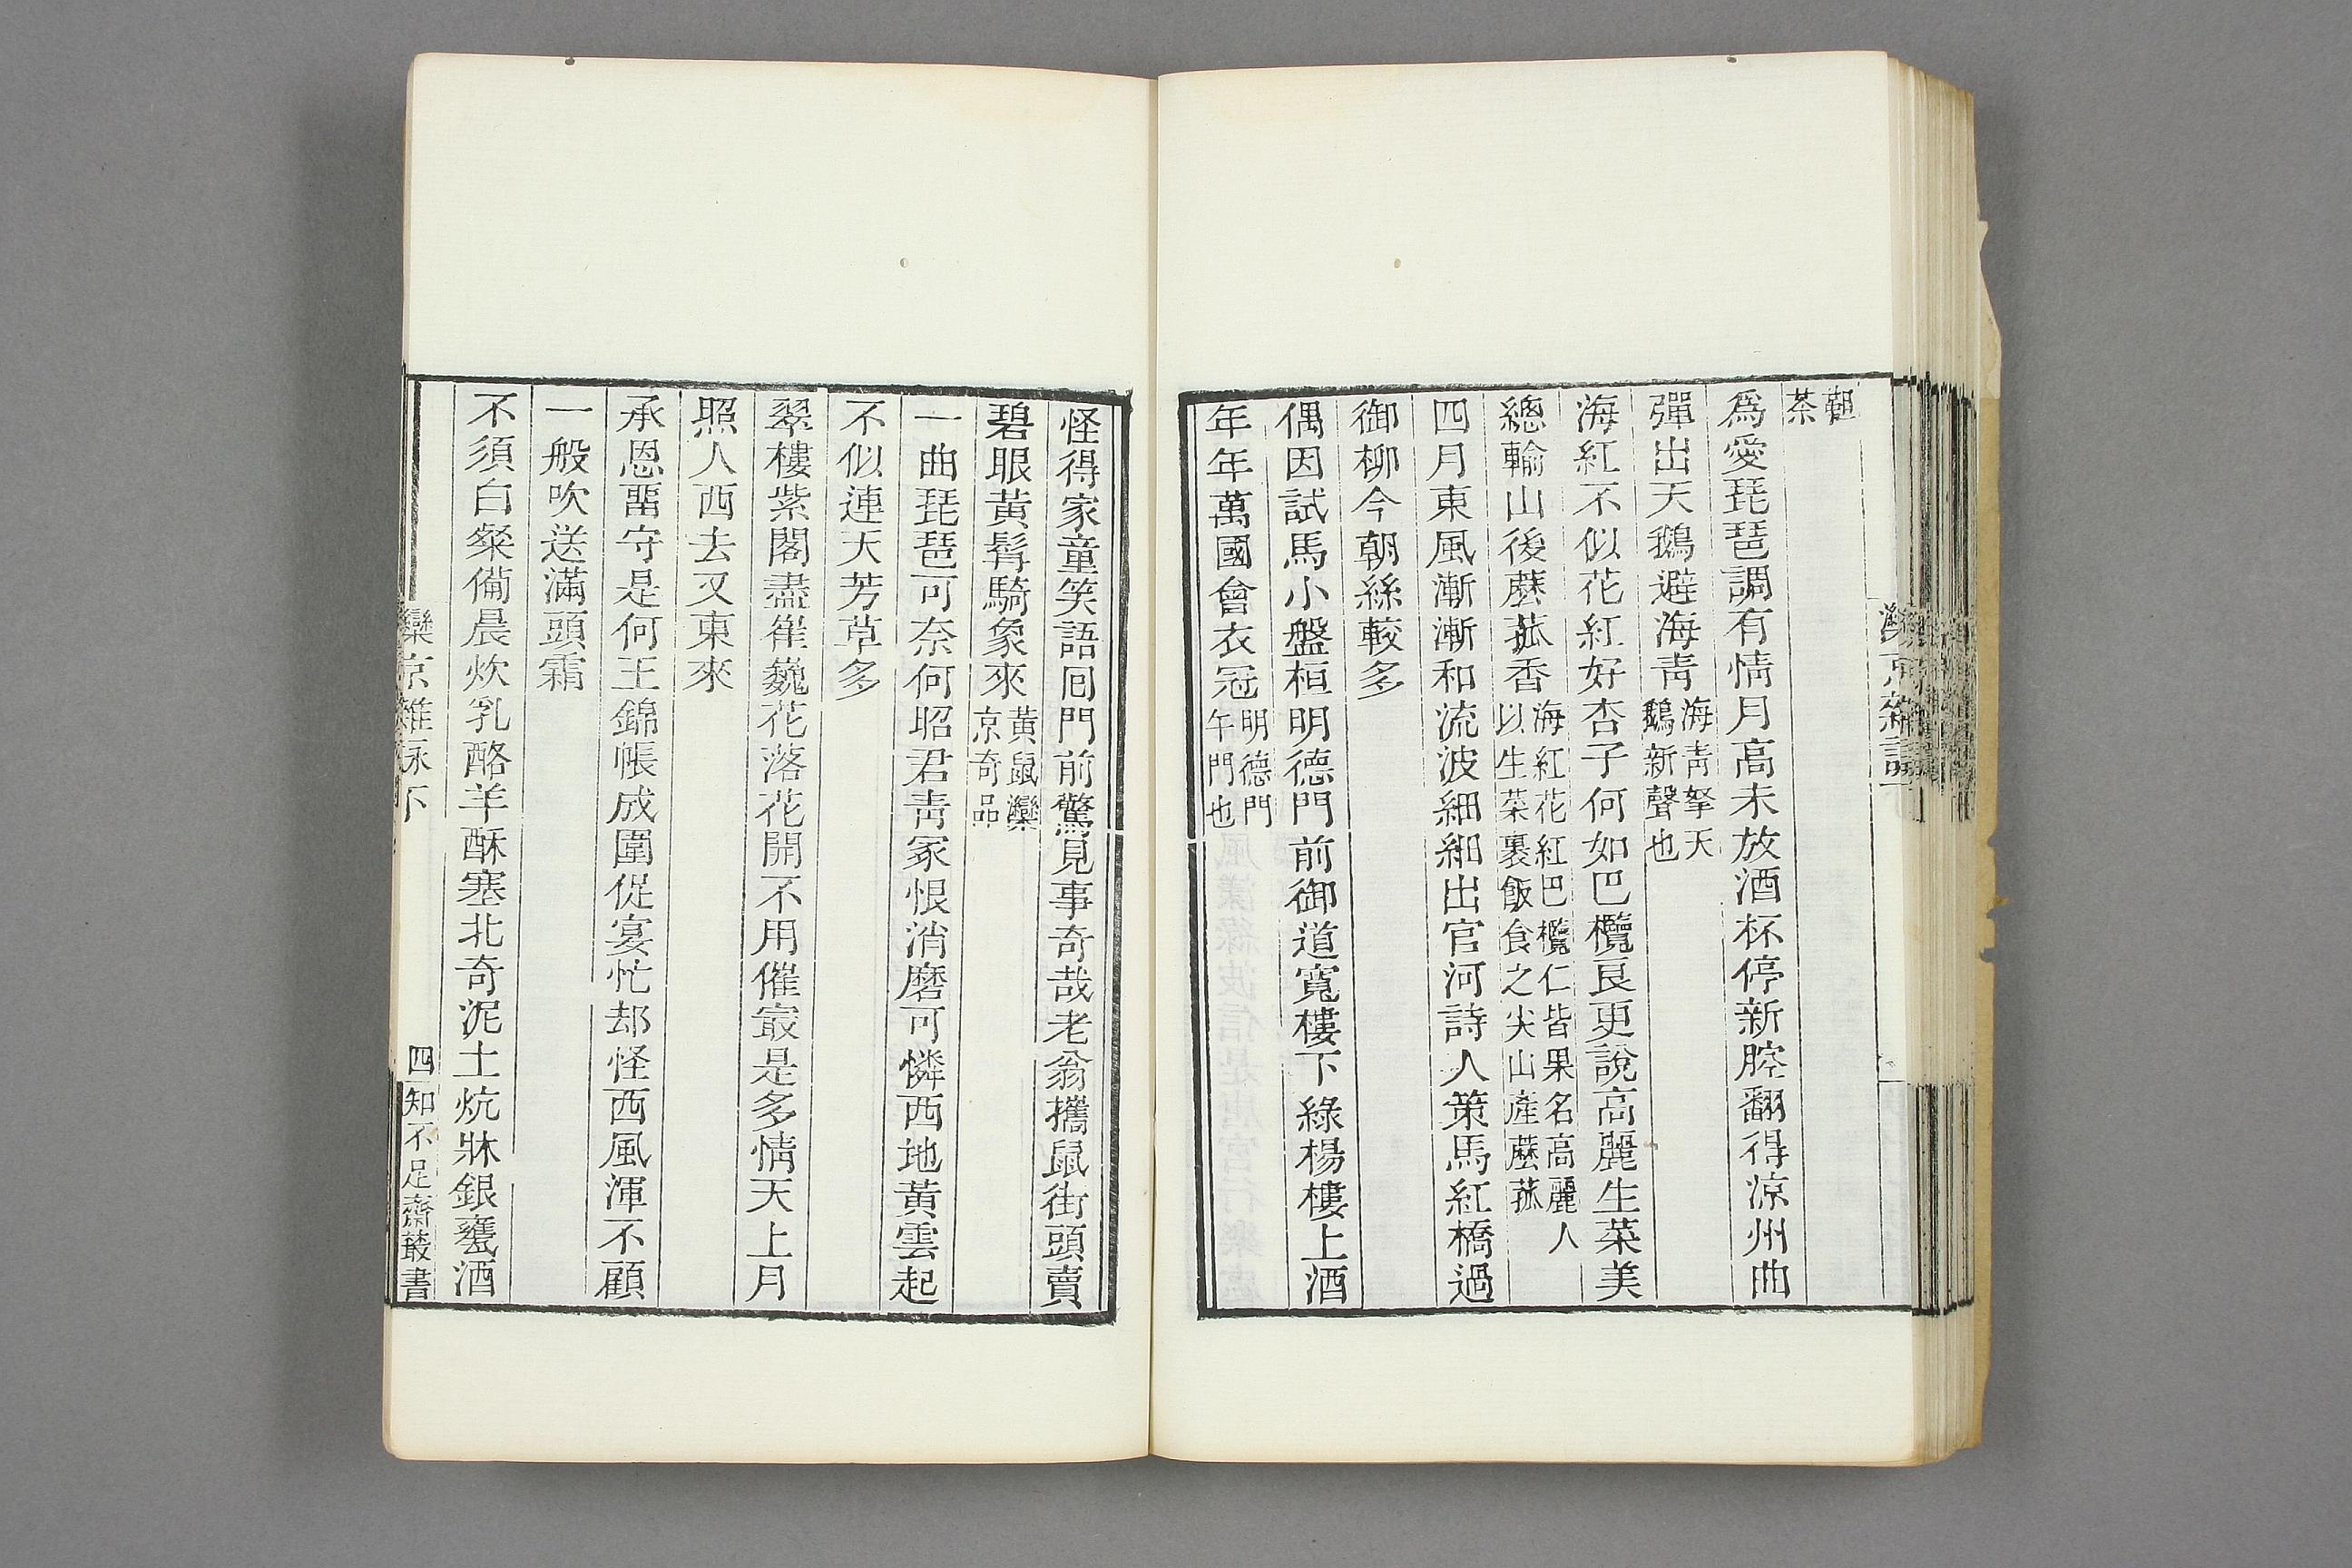 觀
茶
爲愛琵琶調有情月高未放酒杯停新腔翻得涼州曲
彈出天鵝避海青海青拏天鵝新聲也
海紅不似花紅好杏子何如巴欖良更說高麗生菜美
總輸山後蘑菰香海紅花紅巴欖仁皆果名高麗人以生菜裹飯食之尖山產蘑菰
四月東風漸漸和流波細細出官河詩人策馬紅橋過
御柳今朝絲較多
偶因試馬小盤桓明德門前御道寬樓下綠楊樓上酒
年年萬國會衣冠明德門午門也
怪得家童笑語囘門前驚見事奇哉老翁攜鼠街頭賣
碧眼黃髯騎象來黃鼠灤京奇品
一曲琵琶可奈何昭君靑冢恨消磨可憐西地黃雲起
不似連天芳草多
翠樓紫閣盡崔巍花落花開不用催㝡是多情天上月
照人西去又東來
承恩畱守是何王錦帳成圍促宴忙却怪西風渾不顧
一般吹送滿頭霜
不須白粲備晨炊乳酪羊酥塞北奇泥土炕牀銀甕酒
灤京雜詠下
四
知不足齋叢書